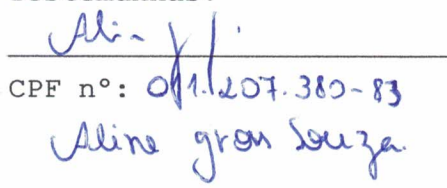 CPF nº: 011.207.380-83
Aline gros Souza